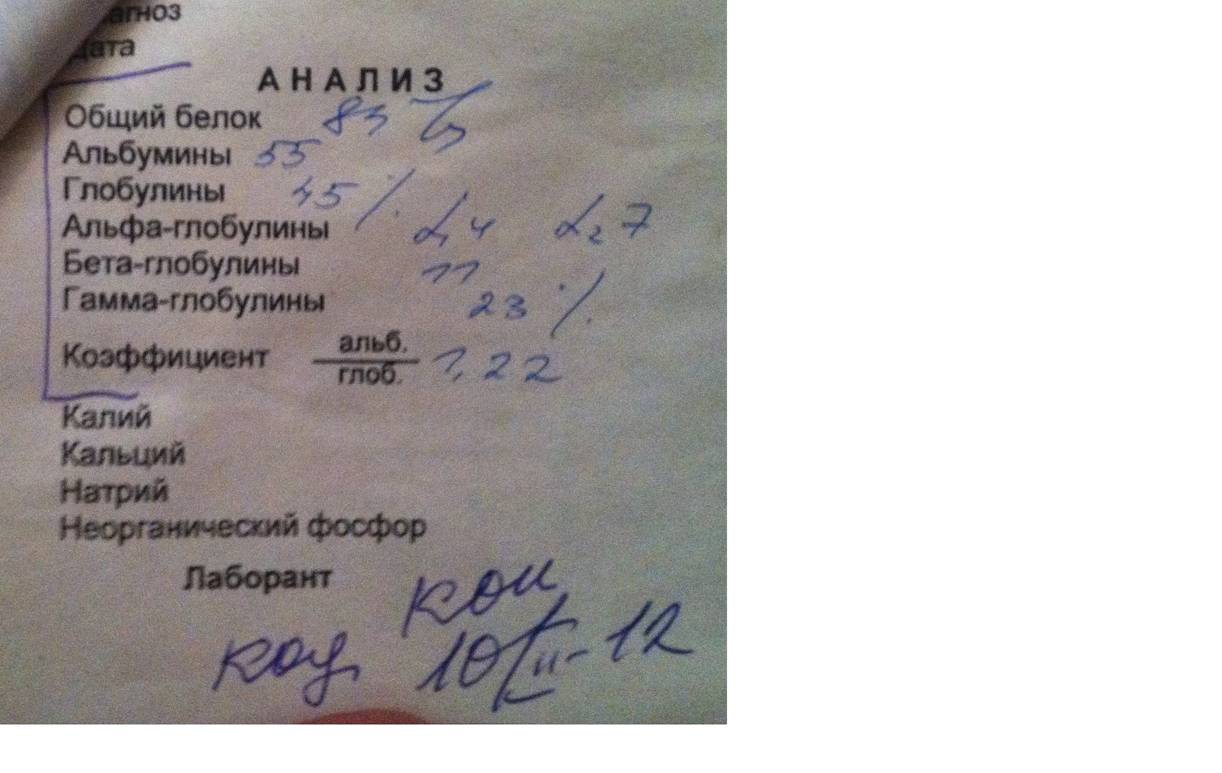 агноз
дата
АНАЛИЗ
Общий белок 83 г/л
Альбумины 55
Глобулины 45 %
Альфа-глобулины α₁ 4 α₂ 7
Бета-глобулины 11
Гамма-глобулины 23 %
Коэффициент альб. / глоб. 1,22
Калий
Кальций
Натрий
Неорганический фосфор
Лаборант
10/II-12